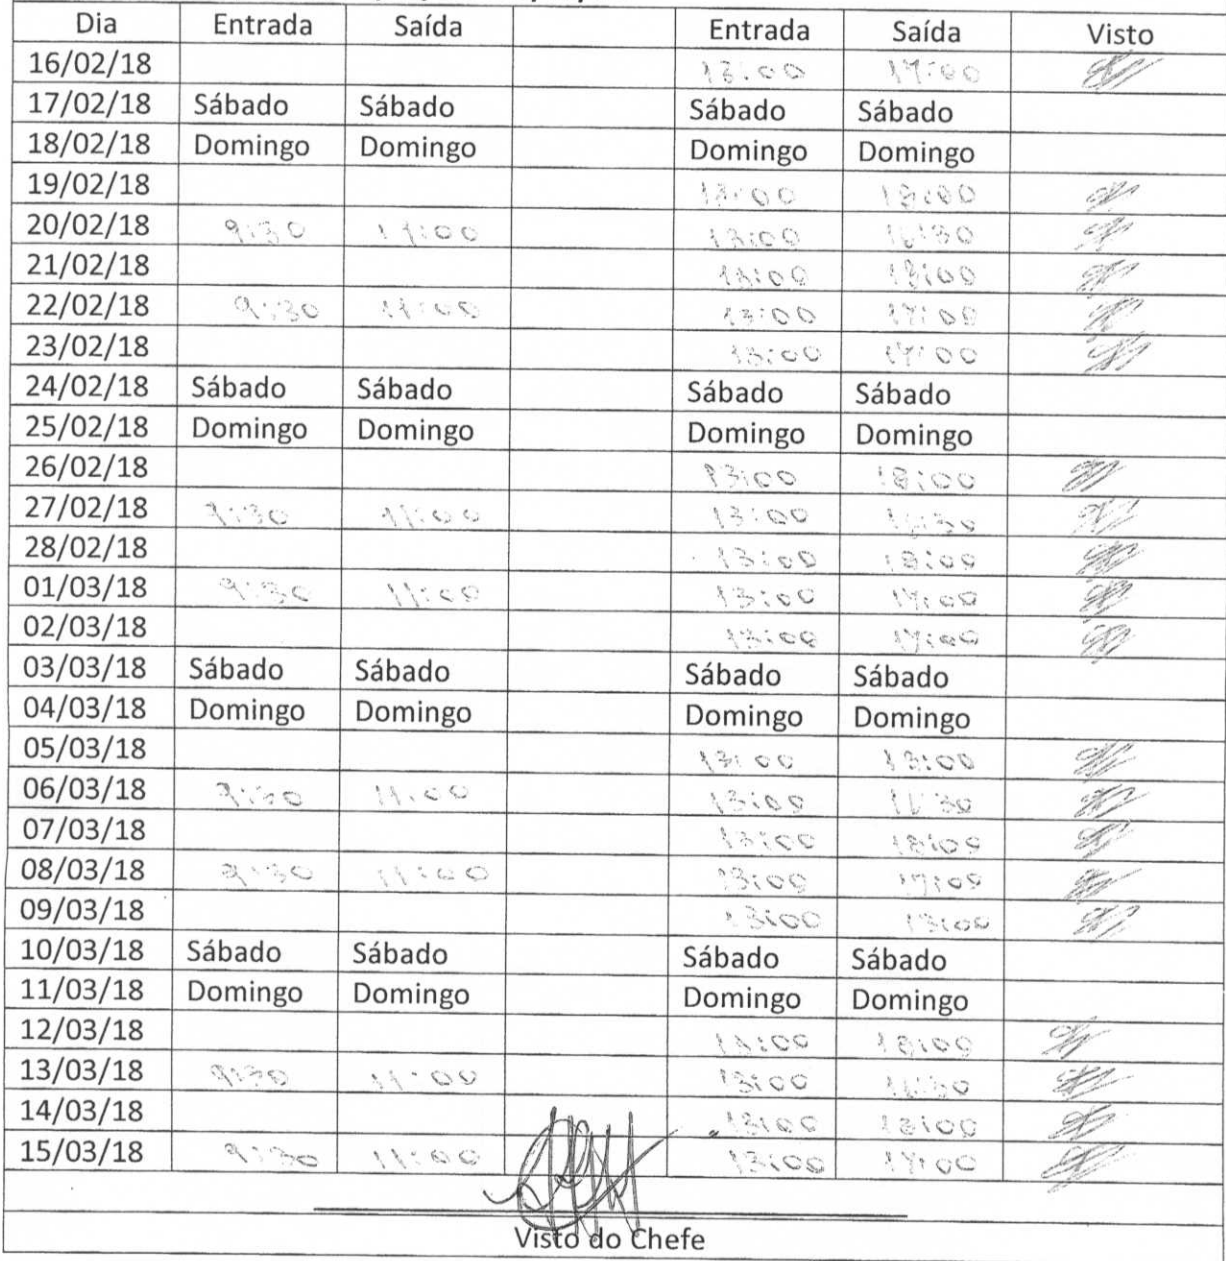 Dia Entrada Saída Entrada Saída Visto
16/02/18 13:00 17:00
17/02/18 Sábado Sábado Sábado Sábado
18/02/18 Domingo Domingo Domingo Domingo
19/02/18 13:00 18:00
20/02/18 9:30 11:00 13:00 16:30
21/02/18 13:00 18:00
22/02/18 9:30 11:00 13:00 17:00
23/02/18 13:00 17:00
24/02/18 Sábado Sábado Sábado Sábado
25/02/18 Domingo Domingo Domingo Domingo
26/02/18 13:00 18:00
27/02/18 9:30 11:00 13:00
28/02/18 13:00 18:00
01/03/18 9:30 11:00 13:00 17:00
02/03/18 13:00 17:00
03/03/18 Sábado Sábado Sábado Sábado
04/03/18 Domingo Domingo Domingo Domingo
05/03/18 13:00 18:00
06/03/18 9:30 11:00 13:00
07/03/18 13:00 18:00
08/03/18 9:30 11:00 13:00 17:00
09/03/18 13:00
10/03/18 Sábado Sábado Sábado Sábado
11/03/18 Domingo Domingo Domingo Domingo
12/03/18 18:00
13/03/18 9:30 11:00 13:00
14/03/18 13:00 18:00
15/03/18 9:30 11:00 13:00 17:00
Visto do Chefe